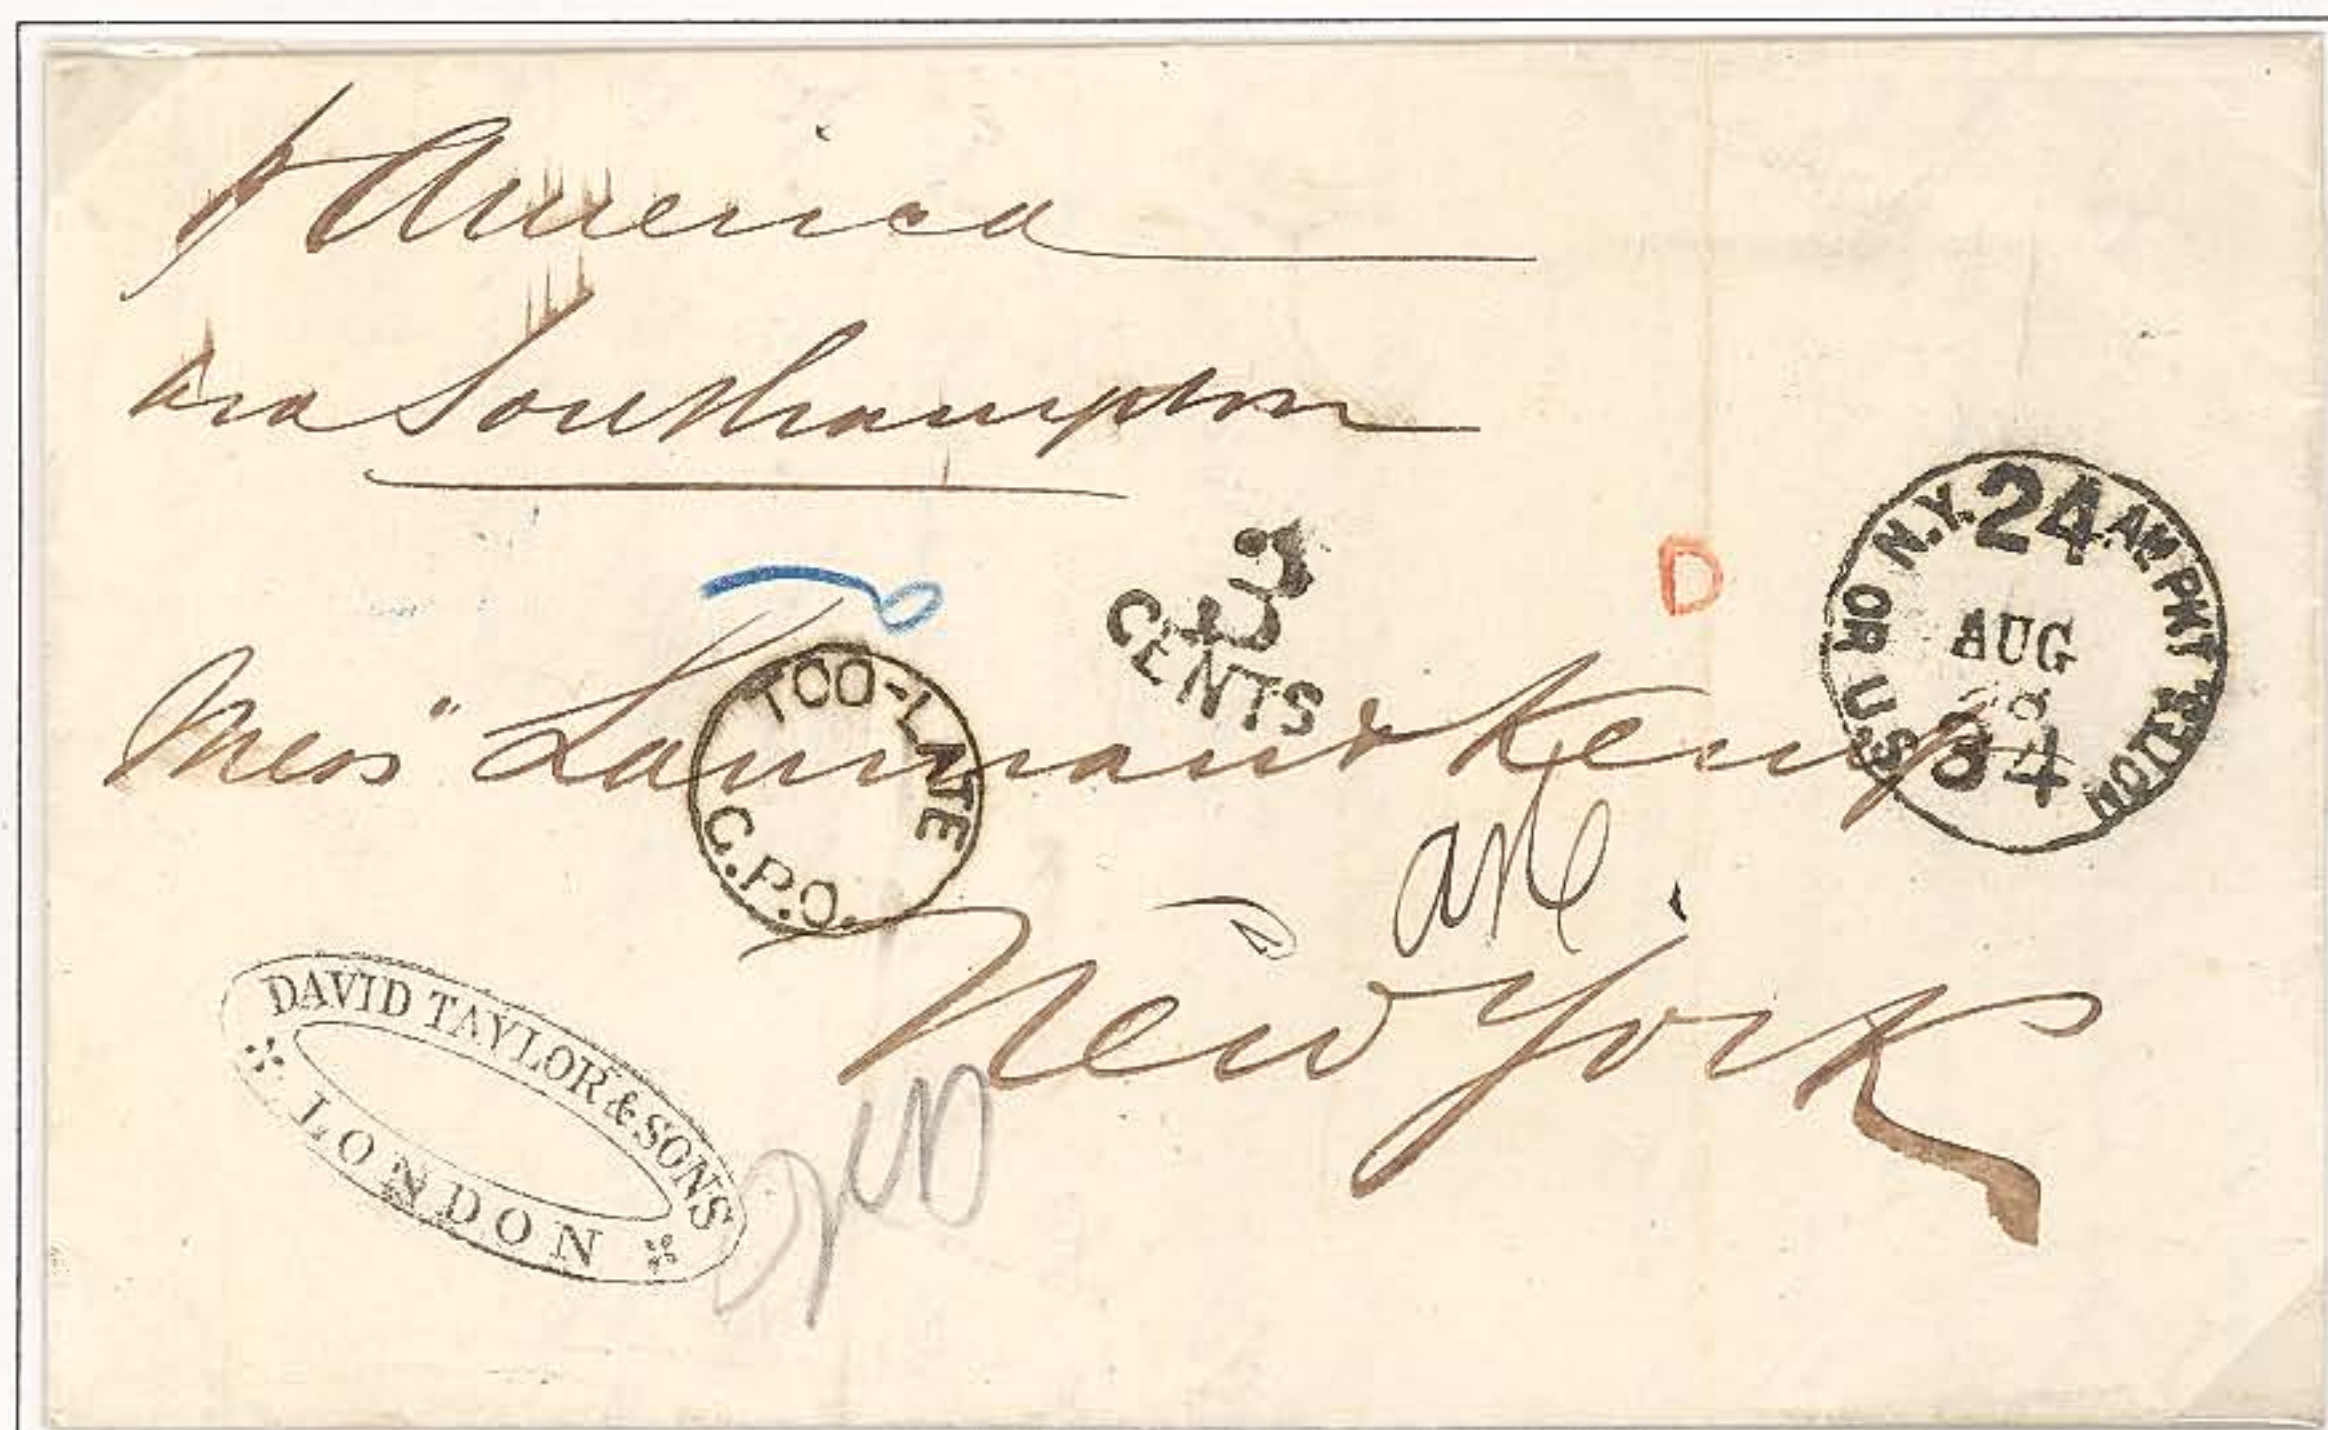 p America
via Southampton
3
CENTS
D
N.Y. 24 AM PKT
OR U.S. 34 NOTION
AUG
28
TOO-LATE
G.P.O.
Mess" Lanman & Kemp
New York
DAVID TAYLOR & SONS
LONDON